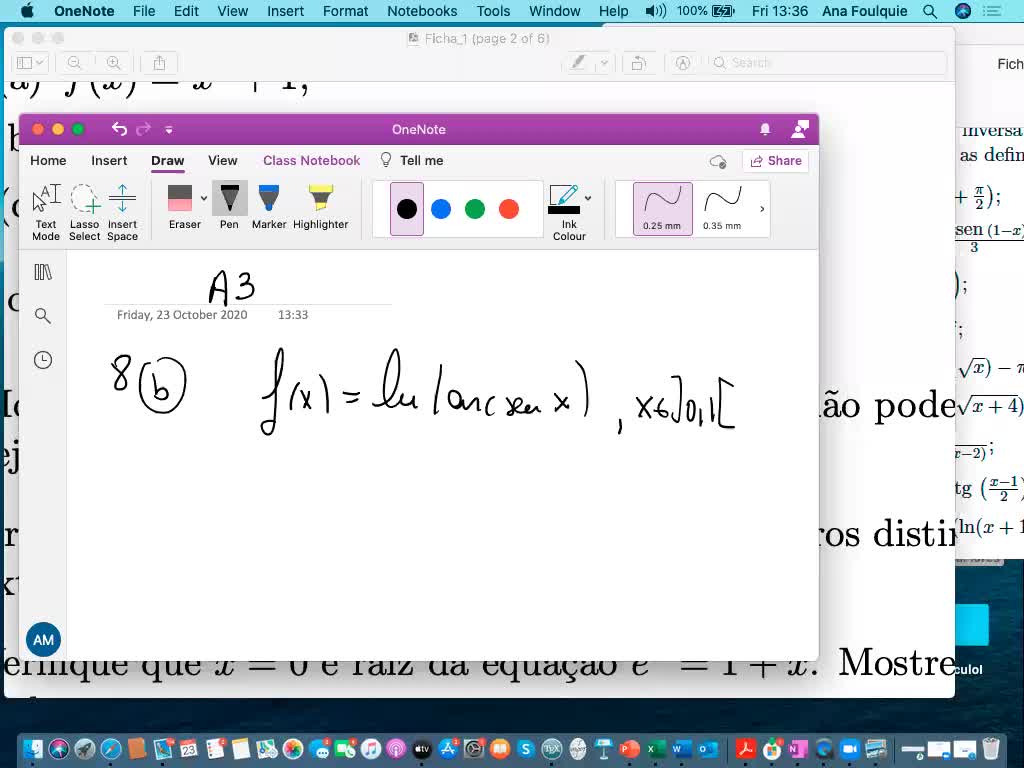 OneNote File Edit View Insert Format Notebooks Tools Window Help 100% Fri 13:36 Ana Foulquie
Ficha_1 (page 2 of 6)
Search
Fich
OneNote
Home Insert Draw View Class Notebook Tell me Share
Text Mode
Lasso Select
Insert Space
Eraser
Pen
Marker
Highlighter
Ink Colour
0.25 mm
0.35 mm
as defin
+ π/2);
sen (1−x)
3
);
;
√x) − π
√x+4)
x−2);
tg (x−1/2)
(ln(x + 1
A3
Friday, 23 October 2020 13:33
8 (b) f(x) = ln(arcsen x) , x∈]0,1[
ão pode
ros distin
AM
erifique que x = 0 é raiz da equação e = 1 + x. Mostre
culoI
23